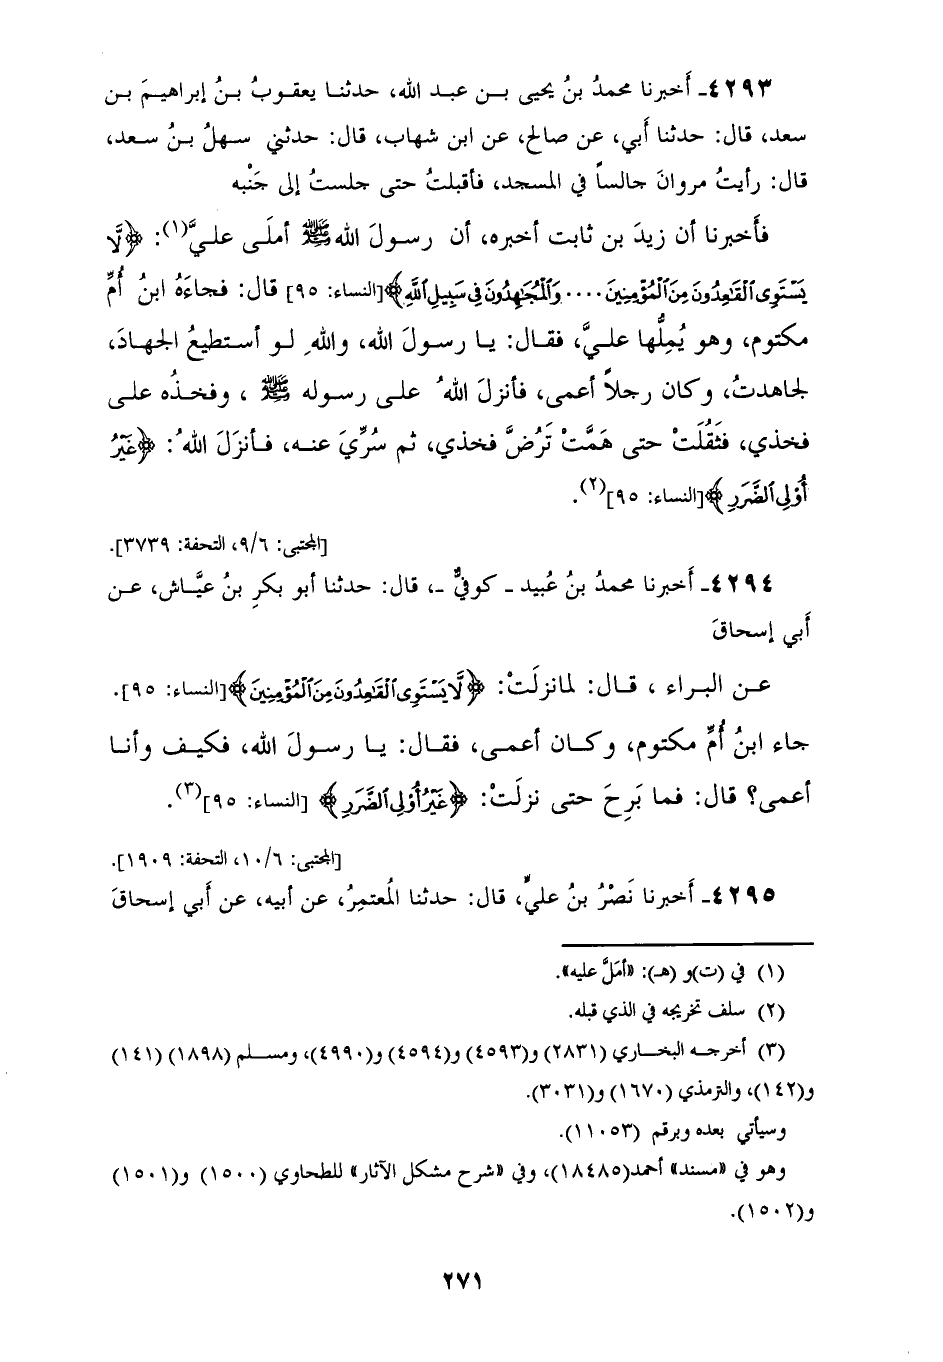 ٤٢٩٣ـ أَخبرنا محمدُ بنُ يحيى بـن عبـد الله، حدثنـا يعقـوبُ بـنُ إبراهيـمَ بـن
سعد، قال: حدثنا أَبي، عن صالح، عن ابن شهاب، قال: حدثني سـهلُ بـنُ سـعد،
قال: رأيتُ مروانَ جالساً في المسجد، فأقبلتُ حتى جلستُ إلى جَنْبه
فأَخبرنا أن زيدَ بن ثابت أخبره، أن رسـولَ الله ﷺ أملَـى علـيَّ(١): ﴿لَّا
يَسْتَوِى ٱلْقَٰعِدُونَ مِنَ ٱلْمُؤْمِنِينَ.... وَٱلْمُجَٰهِدُونَ فِى سَبِيلِ ٱللَّهِ﴾[النساء: ٩٥] قال: فجاءَهُ ابنُ أُمِّ
مكتوم، وهو يُمِلُّها علـيَّ، فقـال: يـا رسـولَ الله، واللهِ لـو أسـتطيعُ الجهـادَ،
لجاهدتُ، وكان رجلاً أعمى، فأنزلَ اللهُ علـى رسـوله ﷺ ، وفخـذُه علـى
فخذي، فثَقُلَتْ حتى هَمَّتْ تَرُضَّ فخذي، ثم سُرِّيَ عنـه، فـأنزَلَ اللهُ: ﴿غَيْرُ
أُوْلِى ٱلضَّرَرِ﴾[النساء: ٩٥](٢).
[المجتبى: ٩/٦، التحفة: ٣٧٣٩].
٤٢٩٤ـ أَخبرنا محمدُ بنُ عُبيد ـ كوفيٌّ ـ، قال: حدثنا أبو بكرِ بنُ عيَّاش، عـن
أَبي إسحاقَ
عـن الـبراء ، قـال: لمانزلَتْ: ﴿لَّا يَسْتَوِى ٱلْقَٰعِدُونَ مِنَ ٱلْمُؤْمِنِينَ﴾[النساء: ٩٥].
جاء ابنُ أُمِّ مكتوم، وكـان أعمـى، فقـال: يـا رسـولَ الله، فكيـف وأنـا
أعمى؟ قال: فما بَرِحَ حتى نزلَتْ: ﴿غَيْرُ أُوْلِى ٱلضَّرَرِ﴾ [النساء: ٩٥](٣).
[المجتبى: ١٠/٦، التحفة: ١٩٠٩].
٤٢٩٥ـ أَخبرنا نَصْرُ بنُ عليٍّ، قال: حدثنا المُعتمِرُ، عن أبيه، عن أَبي إسحاقَ
(١) في (ت)و (هـ): «أمَلَّ عليه».
(٢) سلف تخريجه في الذي قبله.
(٣) أخرجـه البخـاري (٢٨٣١) و(٤٥٩٣) و(٤٥٩٤) و(٤٩٩٠)، ومسـلم (١٨٩٨) (١٤١)
و(١٤٢)، والترمذي (١٦٧٠) و(٣٠٣١).
وسيأتي بعده وبرقم (١١٠٥٣).
وهو في «مسند» أحمد(١٨٤٨٥)، وفي «شرح مشكل الآثار» للطحاوي (١٥٠٠) و(١٥٠١)
و(١٥٠٢).
٢٧١